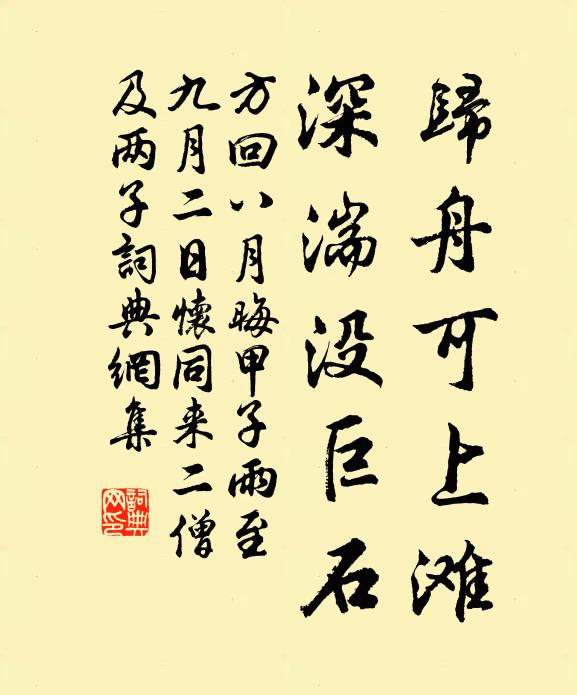 歸舟可上滩
深湍没巨石
方回八月晦甲子雨至
九月二日懷同来二僧
及两子詞典網集
詞典网印